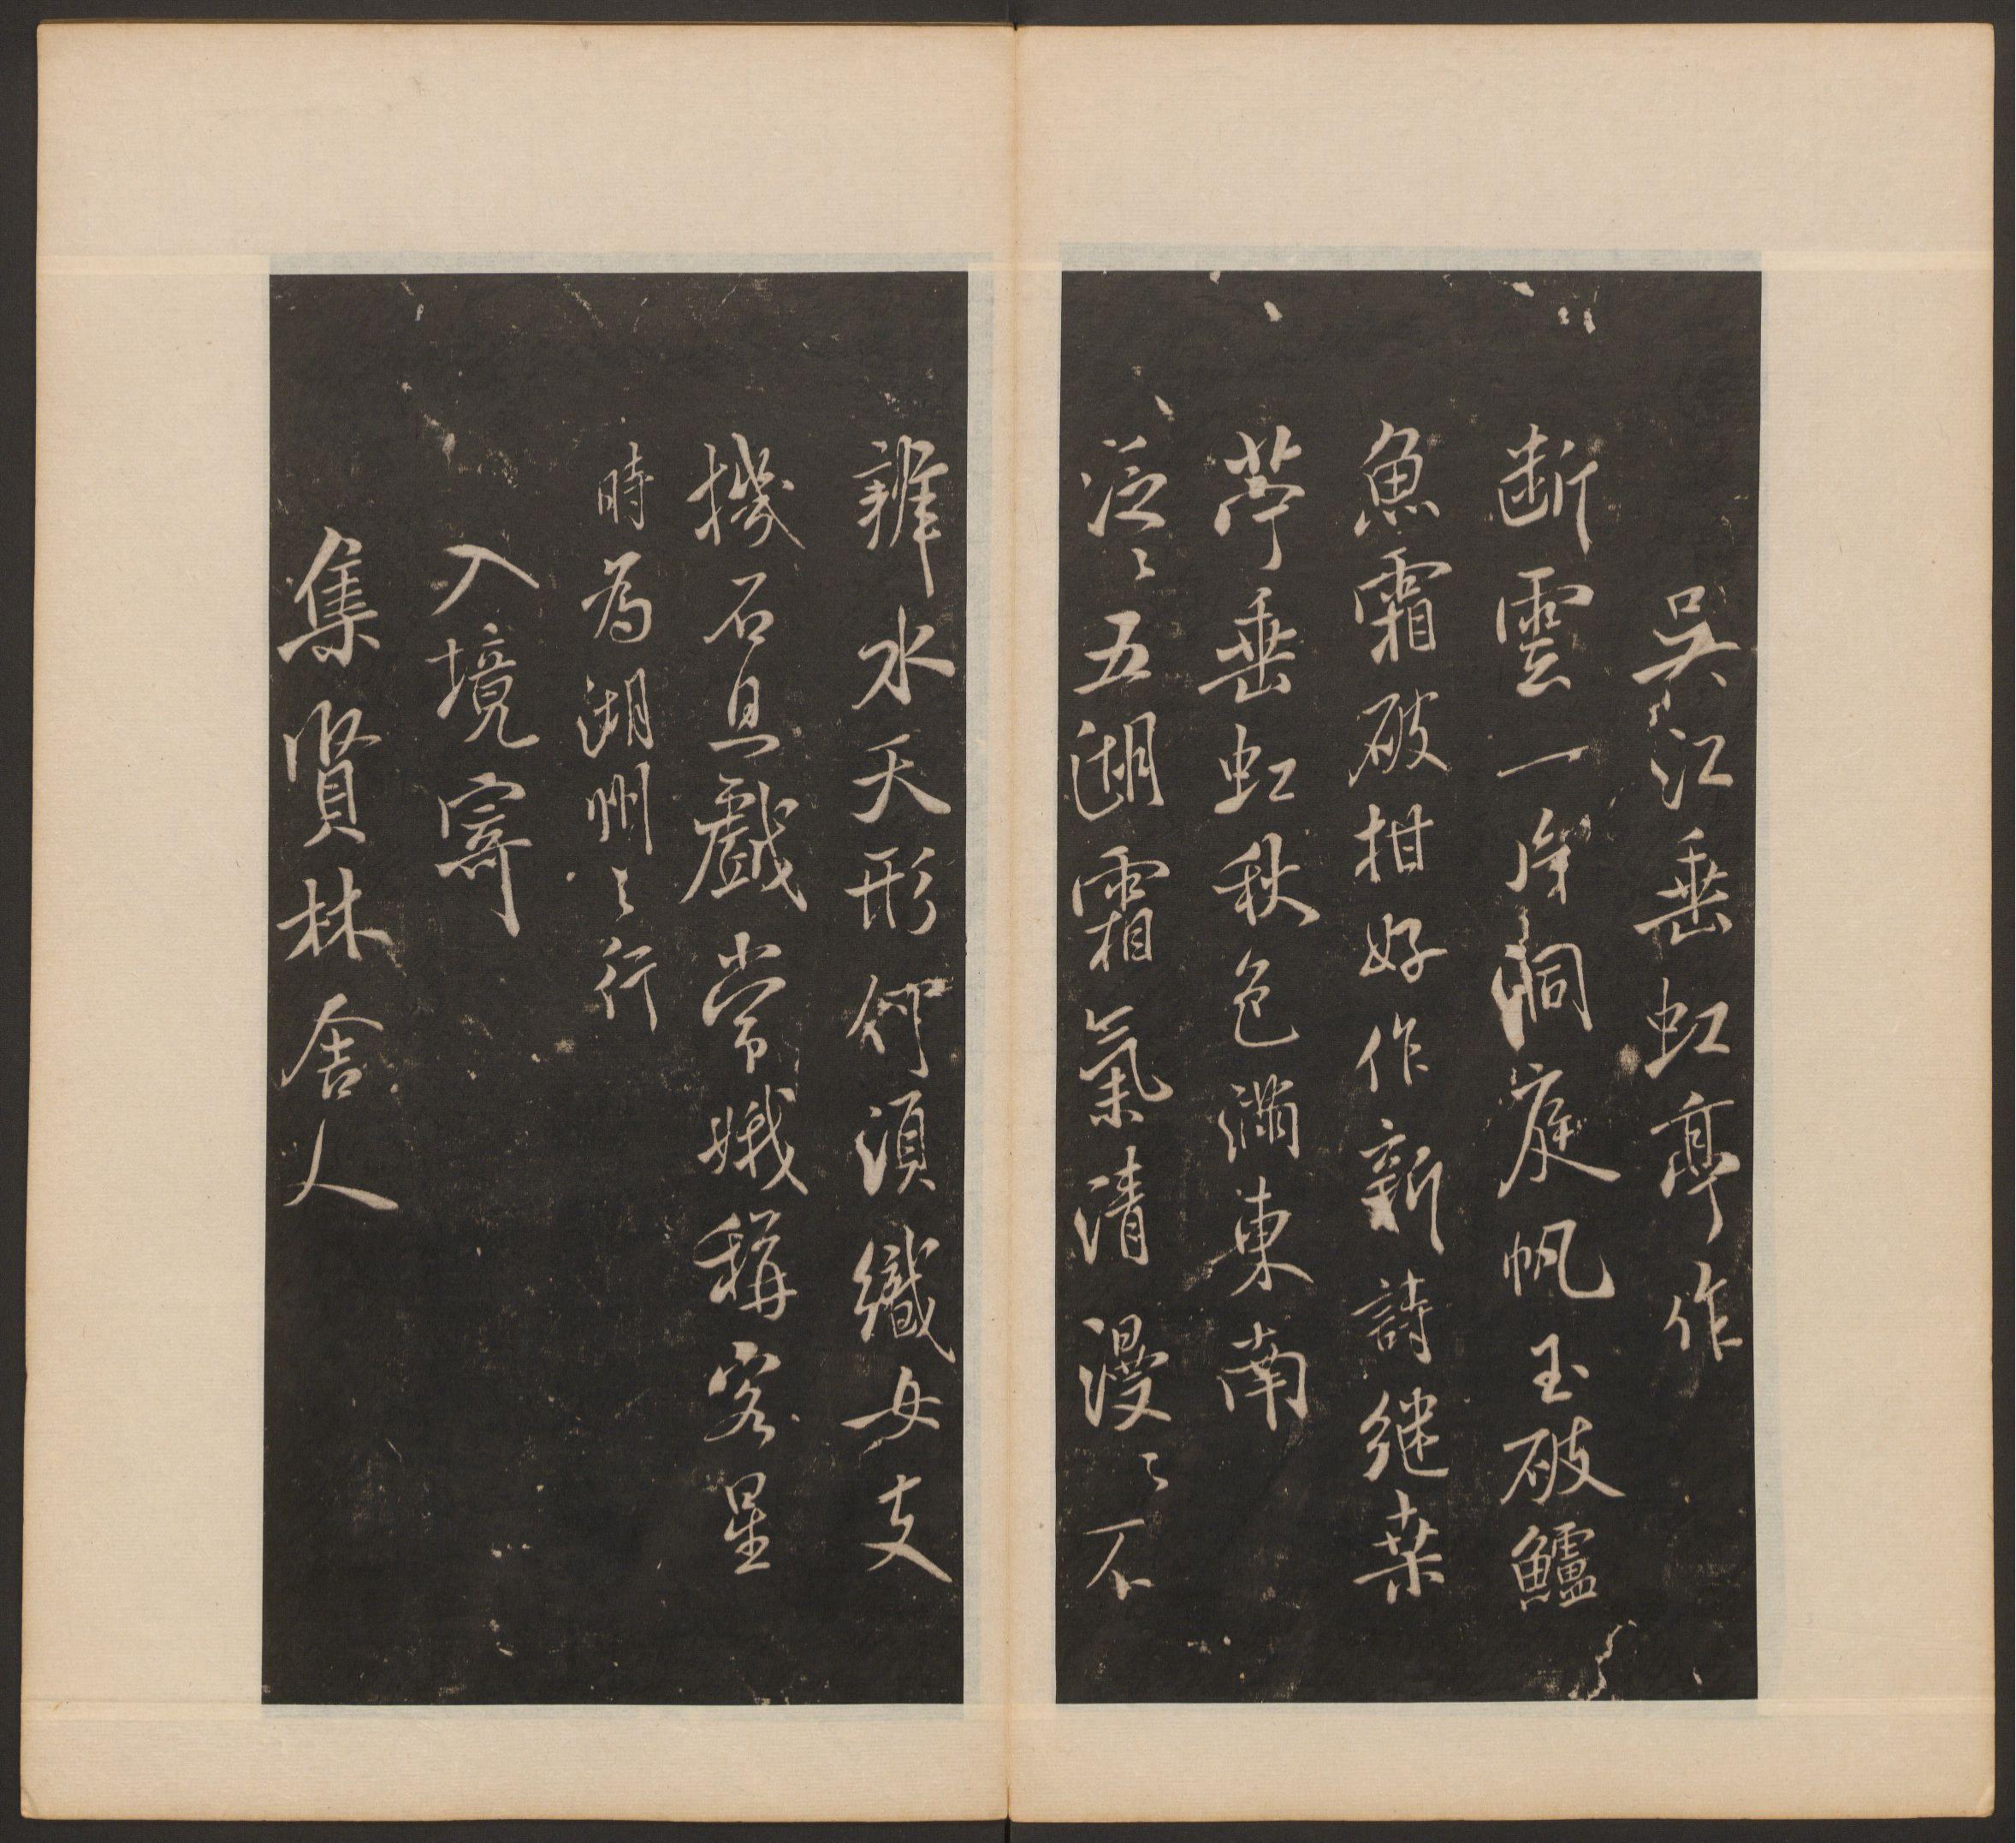 吳江垂虹亭作
断雲一片洞庭帆玉破鱸
魚霜破柑好作新詩継桒
苧垂虹秋色滿東南
泛〻五湖霜氣清漫〻不
辨水天形何須織女支
機石且戲常娥稱客星
時為湖州之行
入境寄
集賢林舍人